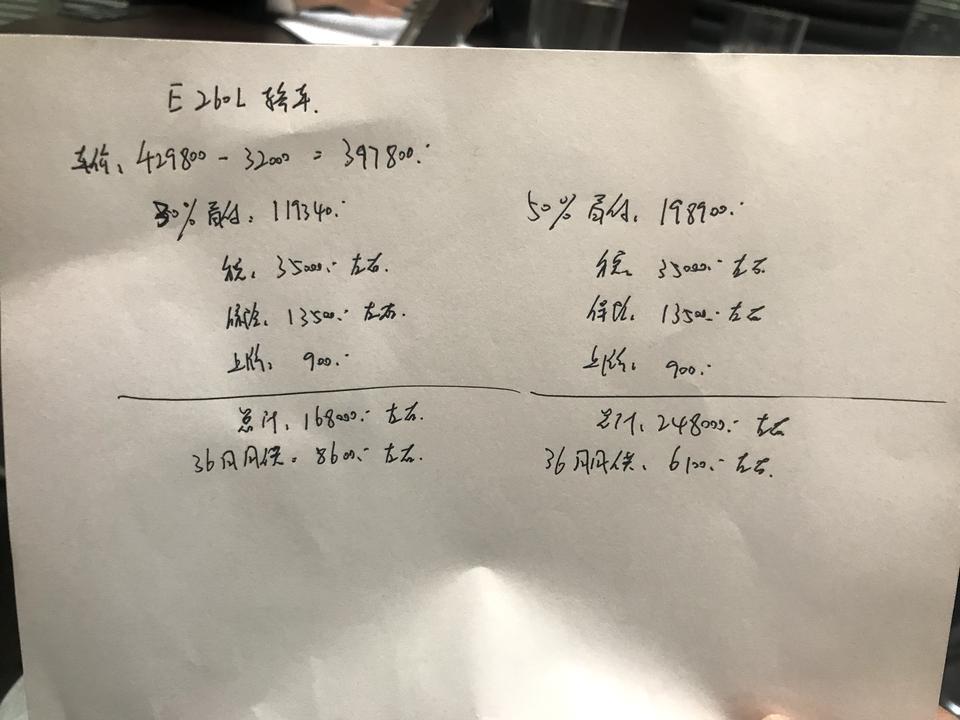 E 260L 轿车.
车价: 429800 - 32000 = 397800.-
30% 首付: 119340.-
税: 35000.- 左右.
保险: 13500.- 左右.
上牌: 900.-
总计: 168000.- 左右.
36月月供: 8600.- 左右.
50% 首付: 198900.-
税: 35000.- 左右.
保险: 13500.- 左右
上牌: 900.-
总计: 248000.- 左右
36月月供: 6100.- 左右.